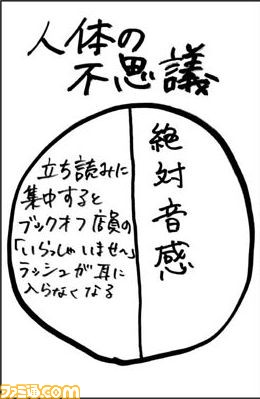 人体の
不思議
絶対音感
立ち読みに
集中すると
ブックオフ店員の
「いらっしゃいませ〜」
ラッシュが耳に
入らなくなる
ファミ通.com